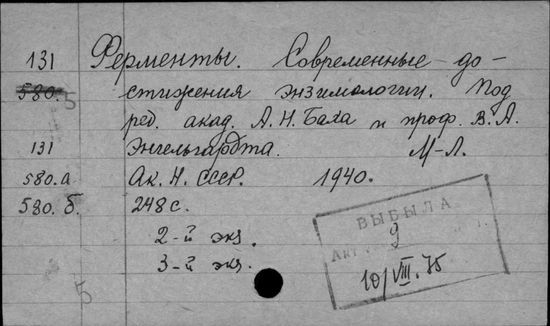 131 Ферменты. Современные до-
580. 5 стижения энзимологии. Под
ред. акад. А.Н. Баха и проф. В.А.
131 Энгельгардта. М-Л.
580.а Ак. Н. СССР. 1940.
580.б. 248 с.
2-й экз.
3-й экз.
5
ВЫБЫЛА
Акт 9
10/VIII.75